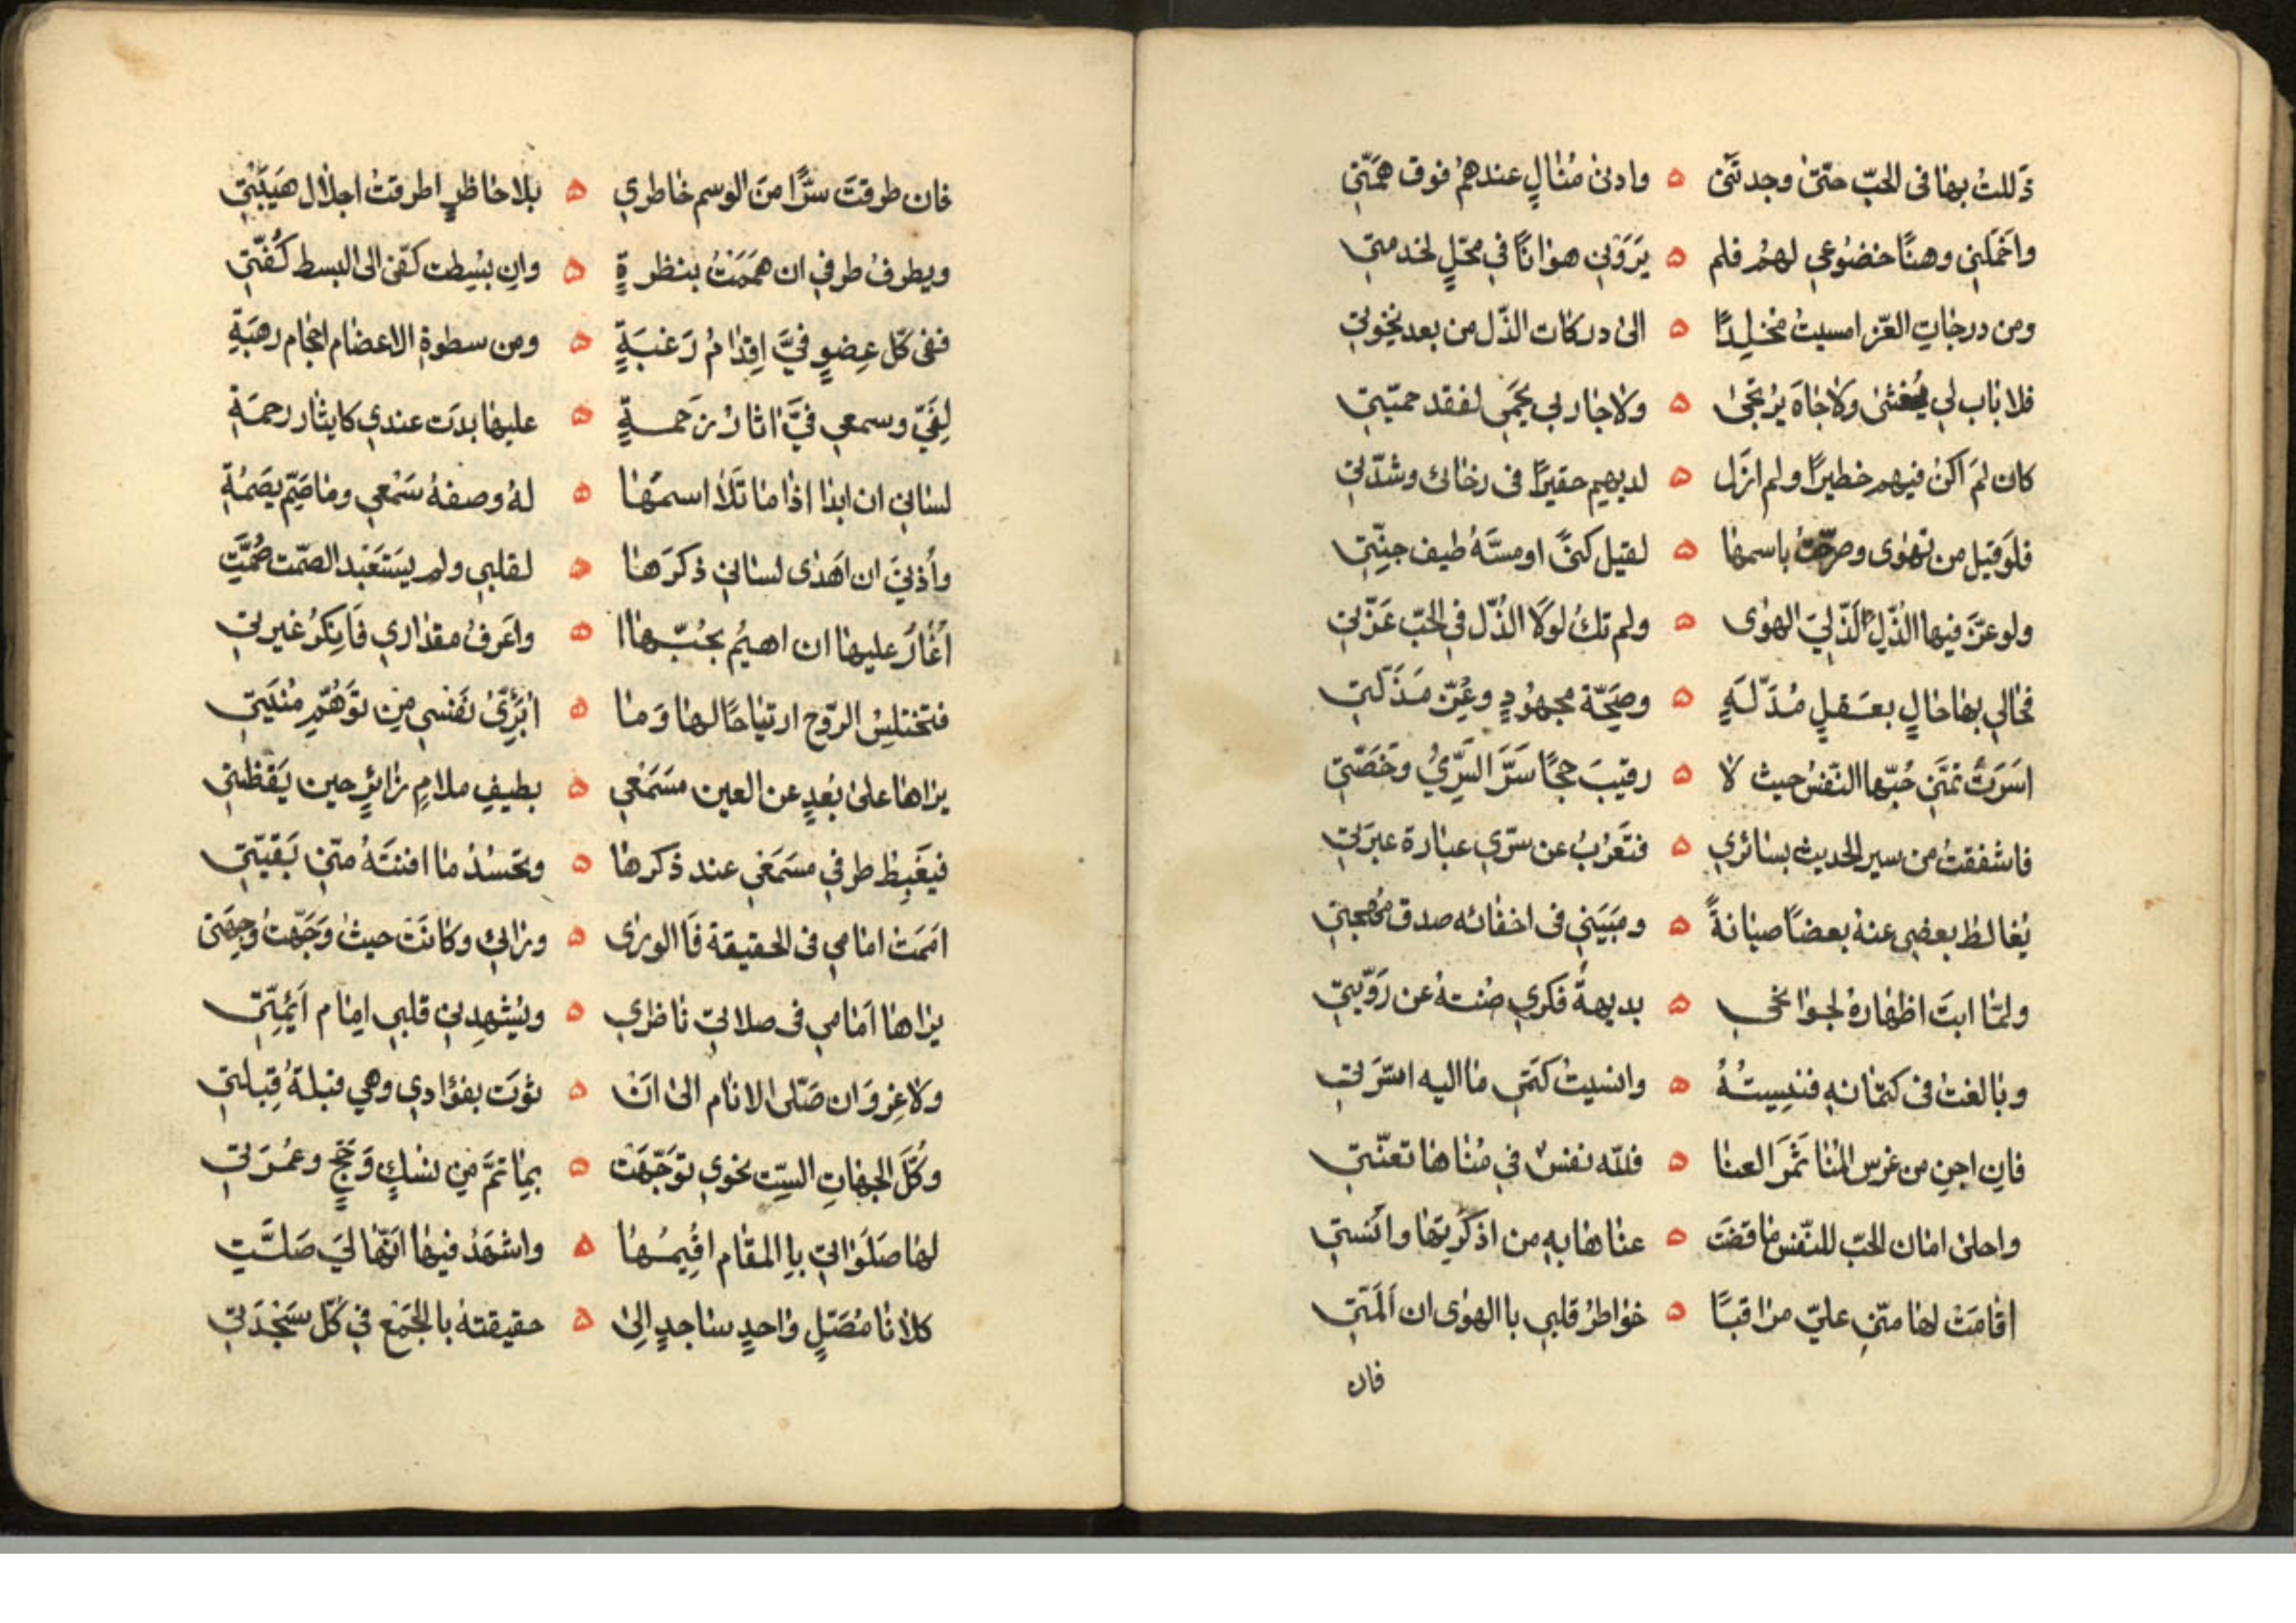 ذَللتُ بها فى الحبّ حتىّ وجدتنى ه وادنى مُنالٍ عندهمُ فوق همّتي
واخملني وهنًا خضُوعي لهمُ فلم ه يَرَوني هوانًا في محلٍّ لخدمتي
ومن درجاتِ العّز امسيتُ مخلِدًا ه الى دركات الذّل من بعد نخوتي
فلا باب لي يُغشى ولا جاهَ يُرتجى ه ولا جار لي يحمى لفقد حميّتي
كان لمَ اكنُ فيهم خطيرًا ولم ازَل ه لديهم حقيرًا فى رخائى وشدّتي
فلو قيل من تهوى وصرّحتُ باسمها ه لقيل كنىً او مسّهُ طيف جِنّتي
ولو عزّ فيها الذّل ما لَذّ ليَ الهوى ه ولم تكُ لولا الذُل في الحبّ عَزّتي
فحالي بها حالٍ بعقلِ مُدَلّهٍ ه وصِحّة مجهُودٍ وعُزِّ مَذَلّتي
اسَرّتُ تمنّي حُبّها النّفسُ حيث لا ه رقيبَ حِجًا سَرَّ السِّريُ وخَصّتي
فاشفقتُ من سير الحديث بسائري ه فتعَربُ عن سرّي عبارة عبرَتي
يُغالط بعضى عنهُ بعضًا صيانةً ه ومَيَني فى اخفائه صدق مُهجتي
ولمّا ابتَ اظهارهُ لجوانحى ه بديهةُ فكري صُنتهُ عن رَوّيتي
وبالغتُ فى كتمانهِ فنسِيتُهُ ه وانسيتُ كَتمَي ما اليه اسّرَتي
فاِن اجنِ من غرس المُنا ثَمَرَ العنا ه فللّه نفسٌ في مُناها تعنّتي
واحلى امان الحبّ للنّفس ما قضَت ه عناها به من اذكرَتها وانسَتي
اقامَتْ لها منّي عليّ مراقبًا ه خواطرُ قلبي بالهوى ان اَلَمّتي
فان
فان طرقتَ سرًّا منَ الوسم خاطري ه بلا حاظرٍ اطرقتُ اجلال هَيبَتي
ويطرفُ طرفي ان هَمَمَتُ بنظرةٍ ه وان بسُطت كفّى الى البسط كُفّتي
ففى كلّ عِضوٍ فيَّ اِقِدامُ رَغبَةٍ ه ومن سطوةِ الاعضام احجام رهبَةِ
لِفَيّ وسمعي فيَّ اثارُ زَحمةٍ ه عليها بدَت عندي كايثار رحمَةِ
لساني ان ابدا اذا ما تَلا اسمَها ه لهُ وصفهُ سَمْعي وما صَمّ يصَمُتِ
وأذنيَ ان اَهدى لساني ذكرَهَا ه لقلبي ولم يستَعبد الصّمت صُمَّتِ
اَغارُ عليها ان اهيمُ بحُبّهاا ه واَعرفُ مقداري فَاُنكرُ غيرتي
فتختلِسُ الروّح ارتياحًا لها وَما ه ابَرّئُ نَفسي مِن توَهُّمِ مُنيَتي
يراها على بُعدٍ عن العين مسَمَعي ه بطيفِ ملامٍ زائرٍ حين يَقظتي
فيَغَبِطُ طرفي مسَمَعي عند ذكرها ه وتحسُدُ ما افنتَهُ منّي بَقيّتي
امَمَتُ امامي فى الحقيقة فَاالورى ه ورائى وكانَت حيثُ وَجّهتُ وجِهَتى
يراها اَمَامي فى صلاتي ناظري ه ويشهدِني قلبي اِمام اَئِمّتِي
ولا غِروَ ان صَلّى الانام الى اَنْ ه ثوَت بفؤادي وهي قبلةُ قِبلتي
وكُلّ الجهاتِ السِّت نحوي توَجّهَت ه بِما تمَّ مِن نسُكٍ وَحَجٍّ وعُمرَتي
لها صَلَوَاتي باِ المقام اقُيمُها ه واشهَدُ فيها انّها ليَ صَلّتِ
كلانا مُصَلٍّ واحدٍ ساجدٍ اِلى ه حقيقتهُ باِالجَمعْ في كُلّ سَجْدَتي